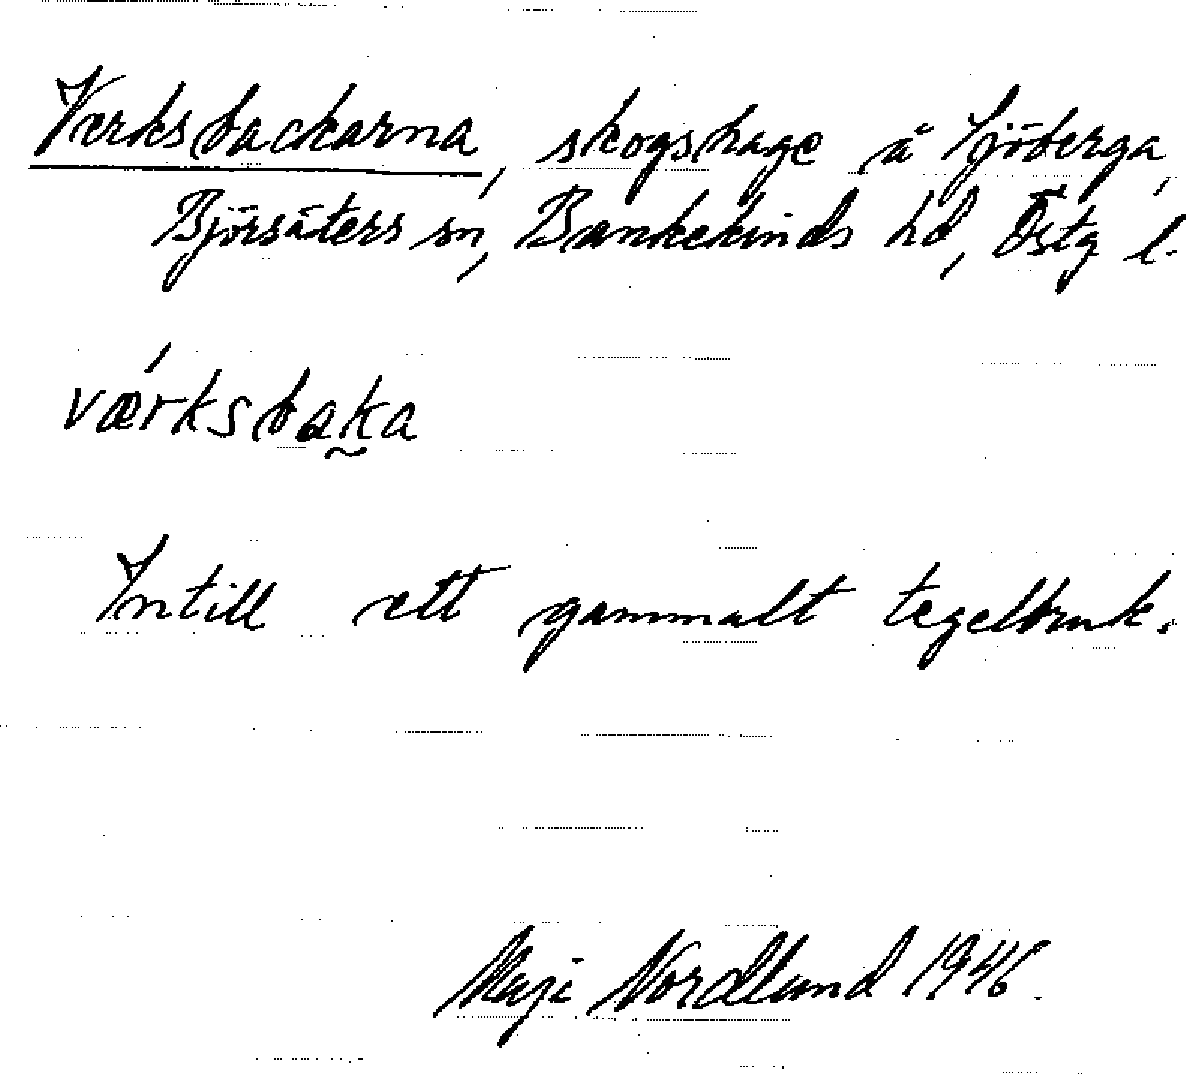 Verksbackarna, skogshage å Sjöberga,
Björsäters sn, Bankekinds hd, Östg l.
værksbaka
Intill ett gammalt tegelbruk.
Maji Nordlund 1946.